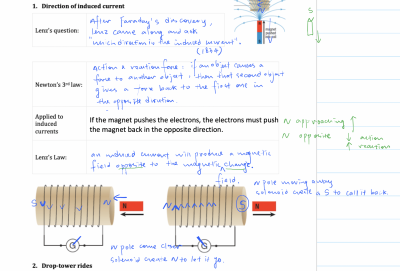 1. Direction of induced current
Lenz's question:
After Faraday's discovery,
Lenz came along and ask
"which direction is the induced current".
(1834)
Newton's 3rd law:
Action & reaction force: if an object causes a
force to another object, then that second object
gives a force back to the first one in
the opposite direction.
Applied to
induced
currents
If the magnet pushes the electrons, the electrons must push
the magnet back in the opposite direction.
N approaching ↑
N opposite ↓ action
reaction
Lenz's Law:
an induced current will produce a magnetic
field opposite to the magnetic change.
field.
N pole moving away
solenoid create a S to call it back
S N N
N S N
G G
N pole come close
solenoid create N to let it go.
2. Drop-tower rides